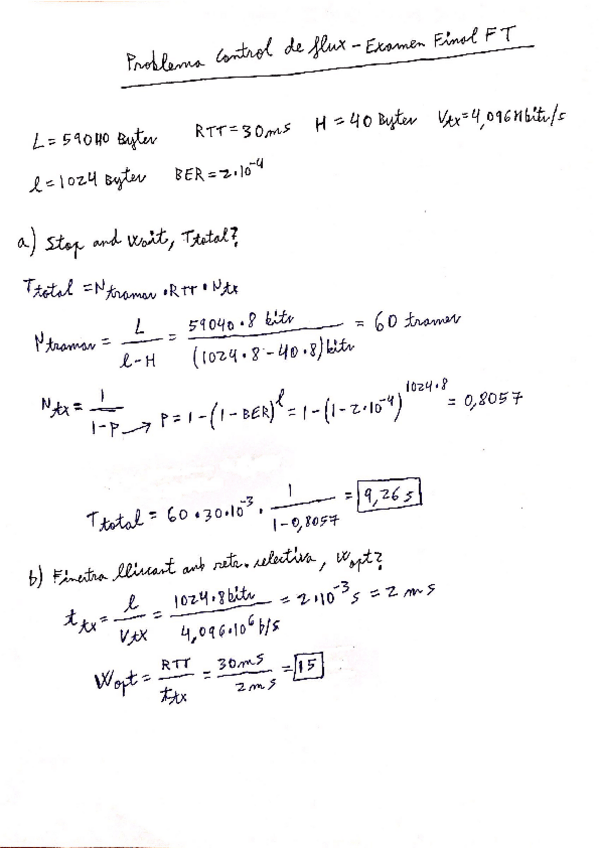 Problema Control de flux - Examen Final FT
L = 59040 Bytes RTT = 30ms H = 40 Bytes Vtx = 4,096 Mbits/s
l = 1024 Bytes BER = 2·10^-4
a) Stop and Wait, Ttotal?
Ttotal = Ntrames · RTT · Ntx
Ntrames = L / (l - H) = 59040 · 8 bits / (1024 · 8 - 40 · 8) bits = 60 trames
Ntx = 1 / (1 - P) → P = 1 - (1 - BER)^l = 1 - (1 - 2·10^-4)^(1024·8) = 0,8057
Ttotal = 60 · 30·10^-3 · 1 / (1 - 0,8057) = 9,26 s
b) Finestra lliscant amb retr. selectiva, Wopt?
ttx = l / Vtx = 1024·8 bits / 4,096·10^6 b/s = 2·10^-3 s = 2 ms
Wopt = RTT / ttx = 30ms / 2ms = 15